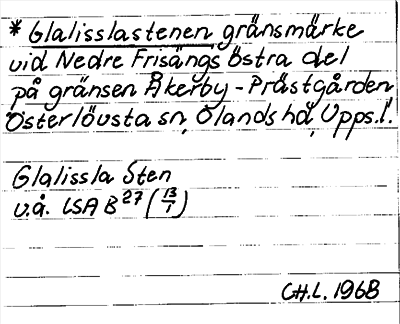 * Glalisslastenen gränsmärke
vid Nedre Frisängs östra del
på gränsen Åkerby - Prästgården,
Österlövsta sn, Olands hd, Upps.l.
Glalissla Sten
u.å. LSA B 27 (13/1)
C.H.L. 1968